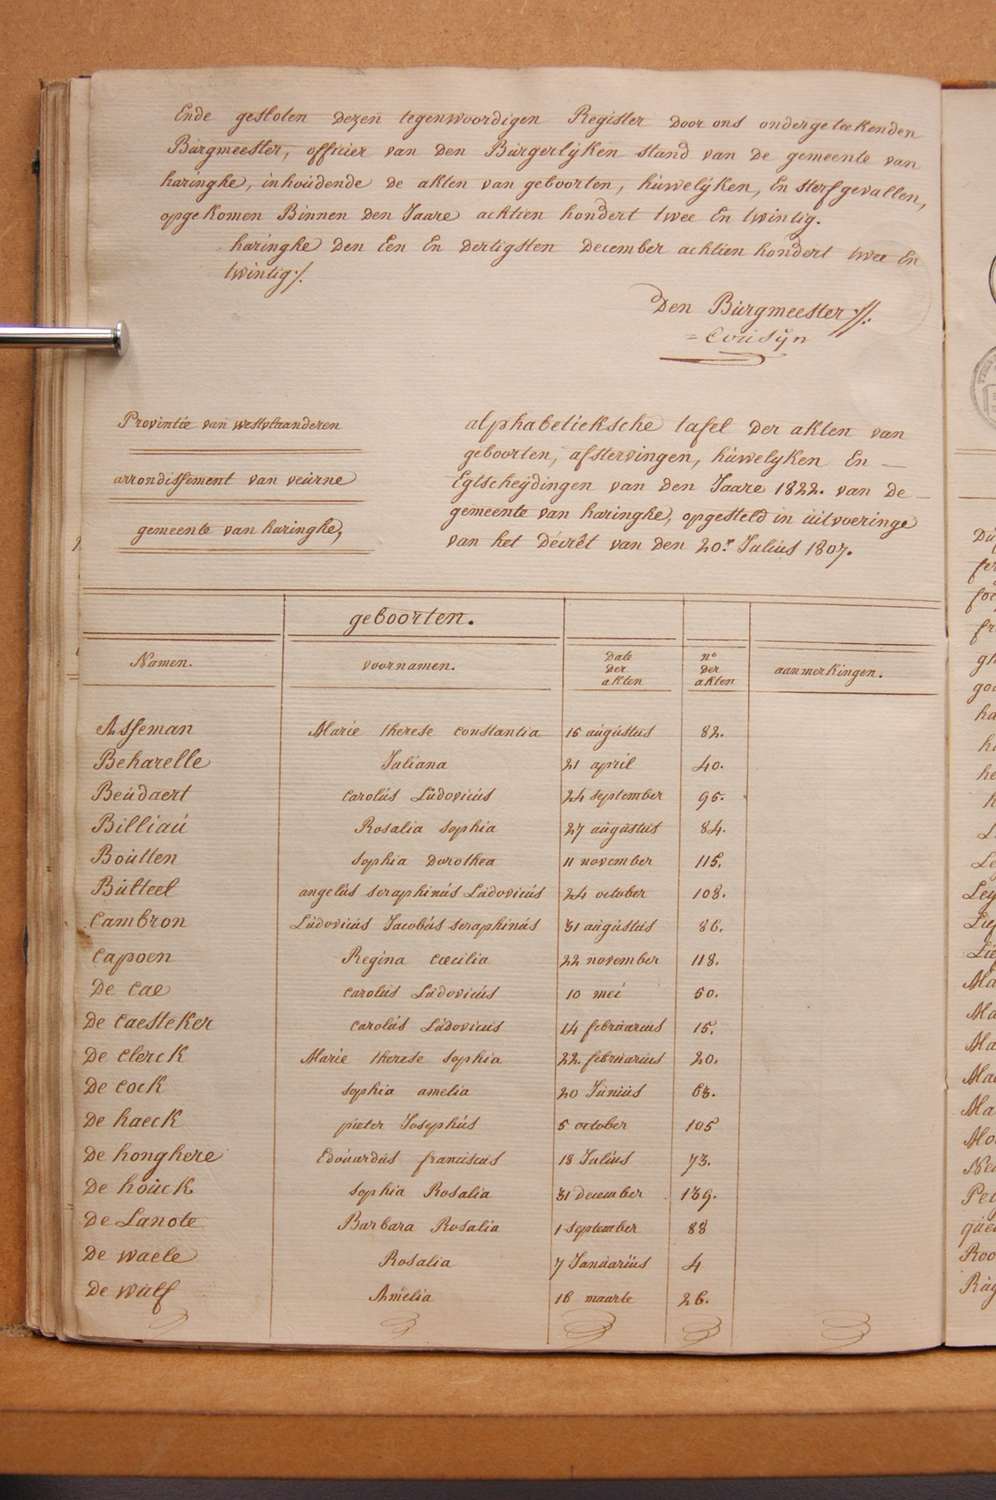 Ende gesloten dezen tegenwoordigen Register door ons ondergeteekenden
Burgmeester, officier van den Burgerlyken stand van de gemeente van
haringhe, inhoudende de akten van geboorten, huwelyken, En sterfgevallen,
opgekomen Binnen den Jaare achtien hondert twee En twintig.
haringhe den Een En dertigsten December achtien hondert twee En
twintig ./.
Den Burgmeester //.
Provintie van westvlaanderen
arrondissement van veurne
gemeente van haringhe,
alphabetieksche tafel der akten van
geboorten, afstervingen, huwelyken En
Egtscheydingen van den Jaare 1822. van de
gemeente van haringhe, opgesteld in uitvoeringe
van het Décrêt van den 20.r Julius 1807.
geboorten.
Namen. voornamen. Date der akten no der akten aanmerkingen.
Asseman Marie therese constantia 16 augustus 82.
Beharelle Juliana 21 april 40.
Beudaert carolus Ludovicus 24 september 95.
Billiau Rosalia sophia 27 augustus 84.
Boutten sophia Dorothea 11 november 115.
Bulteel angelus seraphinus Ludovicus 24 october 108.
Cambron Ludovicus Jacobus seraphinus 31 augustus 86.
Capoen Regina cœcilia 22 november 118.
De Cae carolus Ludovicus 10 mei 50.
De Caesteker carolus Ludovicus 14 februarius 15.
De Clerck Marie therese sophia 22. februarius 20.
De Cock sophia amelia 20 Junius 63.
De haeck pieter Josephus 5 october 105
De honghere Edouardus franciscus 18 Julius 73.
De houck sophia Rosalia 31 december 139.
De Lanote Barbara Rosalia 1 september 88
De waele Rosalia 7 Januarius 4
De wulf Amelia 16 maarte 26.